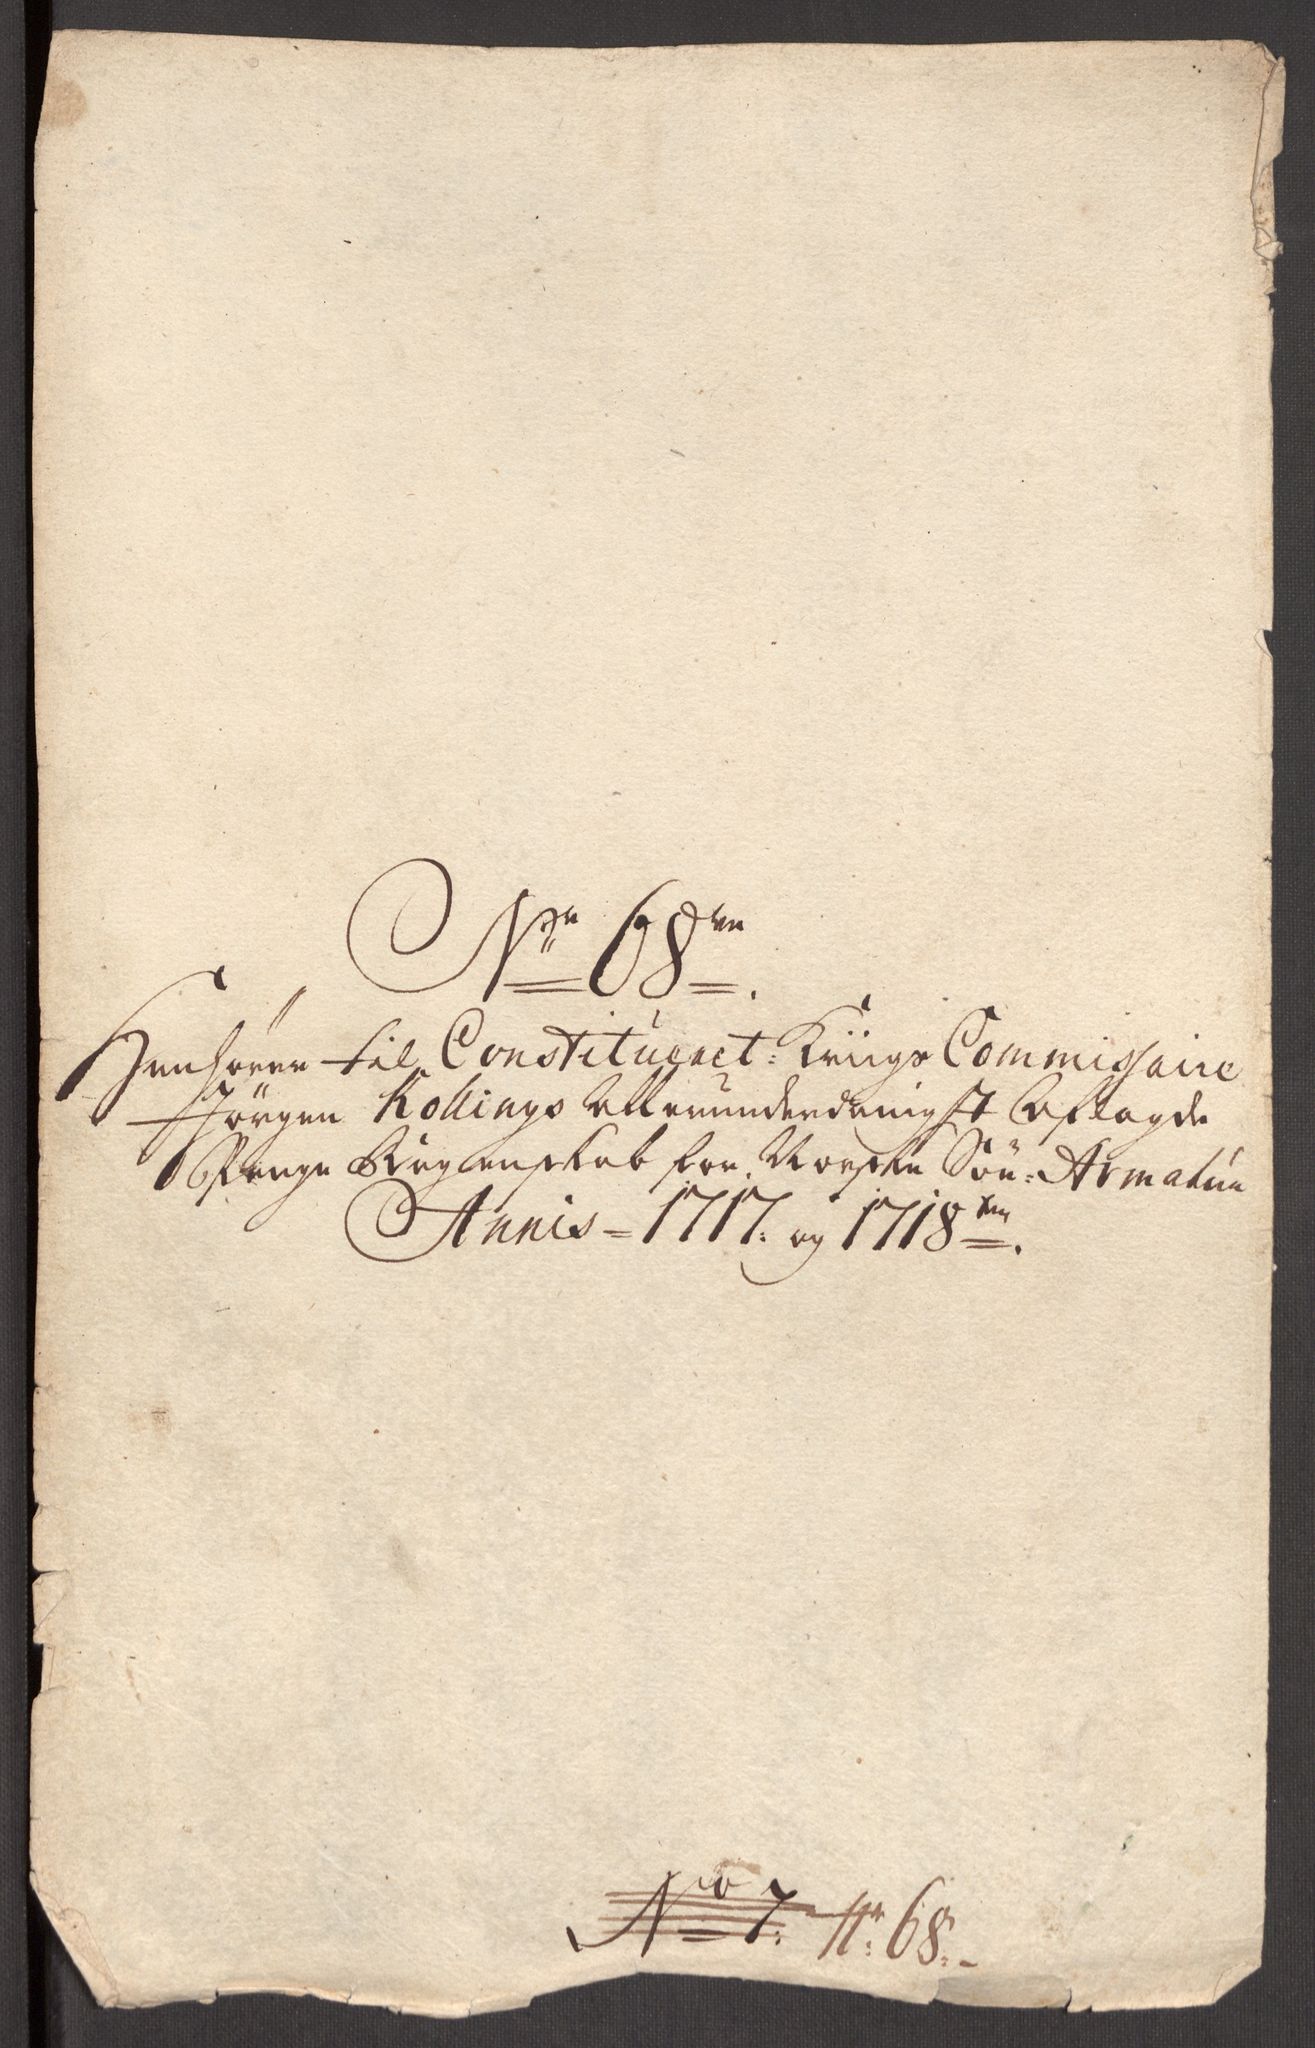 Nr 68
Henhører til Constitueret: Kriigs Commissaire
Jörgen Kollings allerunderdanigst Aflagde
Penge Regenskab for Norske Söe: Armatur
Annis = 1717: og 1718
No 7. Nr: 68:-